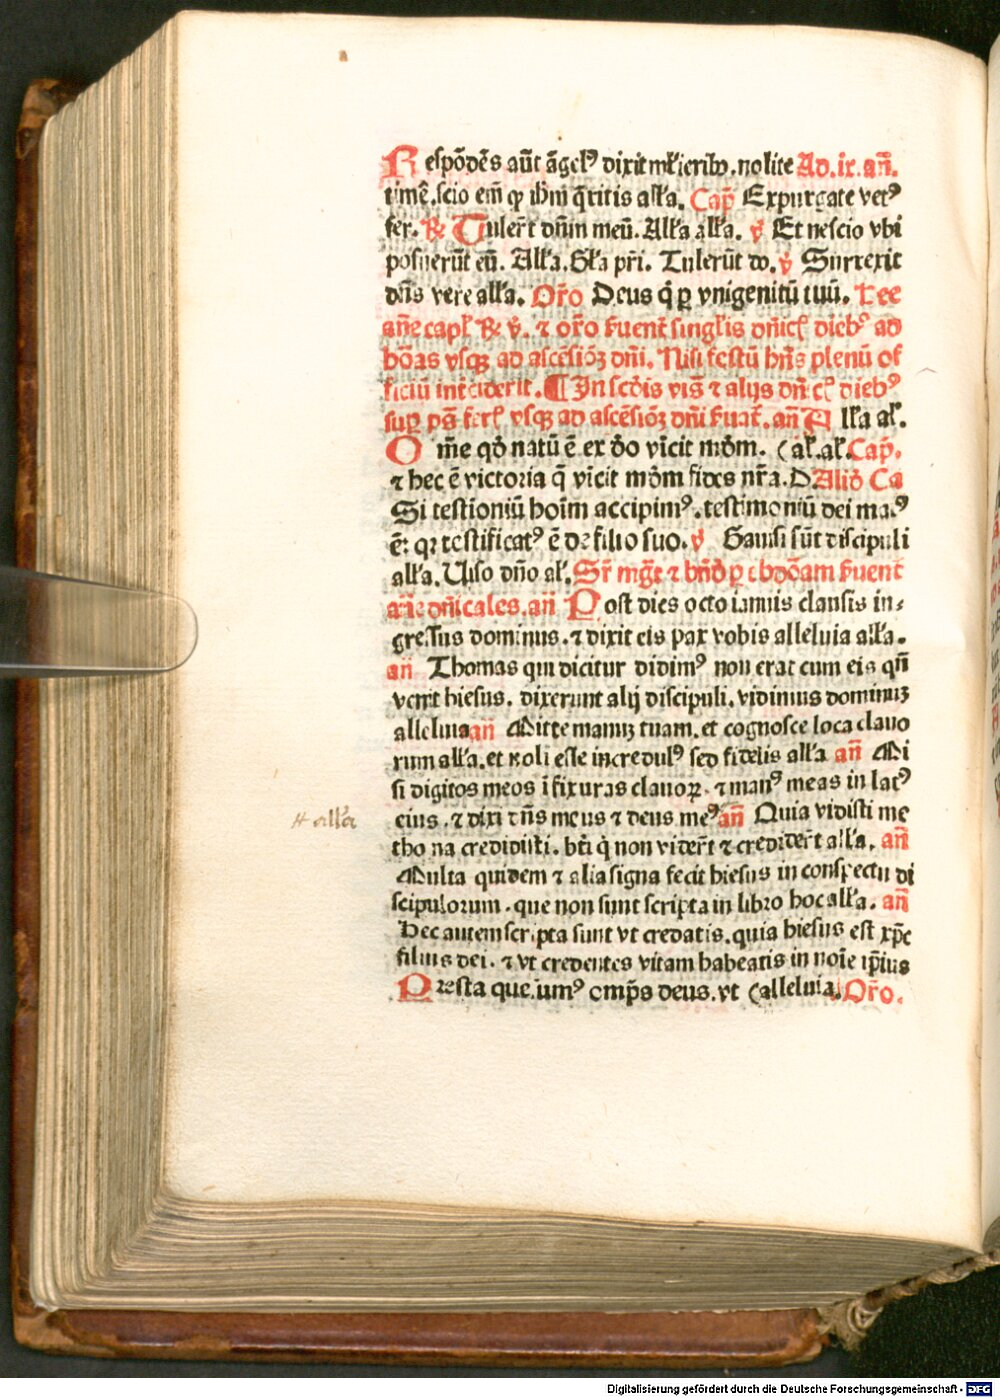 Respōdēs aūt āgelꝰ dixit mł'ieribꝰ. nolite Ad. ix. an̄.
timē. scio em̄ qp ihm̄ q̄ritis alła. Cap̄ Expurgate vetꝰ
fer. ℞ Tuler̄t dn̄m meū. Alła alła. v̓ Et nescio vbi
posuerūt eū. Alła. Gła pr̄i. Tulerūt do. v̓ Surrexit
dn̄s vere alła. Or̄o Deus q̇ ꝑ vnigenitū tuū. Dee
an̄e capł ℞ v̓. ⁊ or̄o ẜuent singłis dn̄icꝭ diebꝰ ad
hōas vsqꝫ ad ascēsiōꝫ dn̄i. Nisi festū hn̄s plenū of
ficiū inteciderit. ¶ In scd̄is vis̄ ⁊ alijs dn̄cꝭ diebꝰ
suꝑ ps̄ ferꝭ vsqꝫ ad ascēsiōꝫ dn̄i ẜuat̄. an̄ Alła ał.
Om̄e qd̄ natū ē ex do vīcit mōm. (ał. ał. Cap̄.
⁊ hec ē victoria q̄ vīcit mōm fides nr̄a. D Aliō Ca
Si testioniū hoīm accipimꝰ. testimoniū dei maꝰ
ē: qꝛ testificatꝰ ē de filio suo. v̓ Gauisi sūt discipuli
alła. Uiso dn̄o ał. Sr̄ mg̅t ⁊ bn̄d ꝑ ebdōam ẜuent
an̄e dn̄icales. an̄ Post dies octo ianuis clausis in-
gressus dominus. ⁊ dixit eis pax vobis alleluia alła.
an̄ Thomas qui dicitur didimꝰ non erat cum eis qn̄
venit hiesus. dixerunt alij discipuli. vidimus dominuꝫ
alleluia an̄ Mitte manuꝫ tuam. et cognosce loca clauo
rum alła. et noli esse incredulꝰ sed fidelis alła an̄ Mi
si digitos meos ī fixuras clauoꝝ. ⁊ manꝰ meas in latꝰ
eius. ⁊ dixi dn̄s meus ⁊ deus meꝰ an̄ Quia vidisti me
# alła
tho na credidisti. bt̄i q̇ non vider̄t ⁊ credider̄t alła. an̄
Multa quidem ⁊ alia signa fecit hiesus in conspectu di
scipulorum. que non sunt scripta in libro hoc alła. an̄
Hec autem scripta sunt vt credatis. quia hiesus est xp̄c
filius dei. ⁊ vt credentes vitam habeatis in noīe ip̄ius
Presta quesumꝰ omp̄s deus. vt (alleluia. Or̄o.
Digitalisierung gefördert durch die Deutsche Forschungsgemeinschaft - DFG